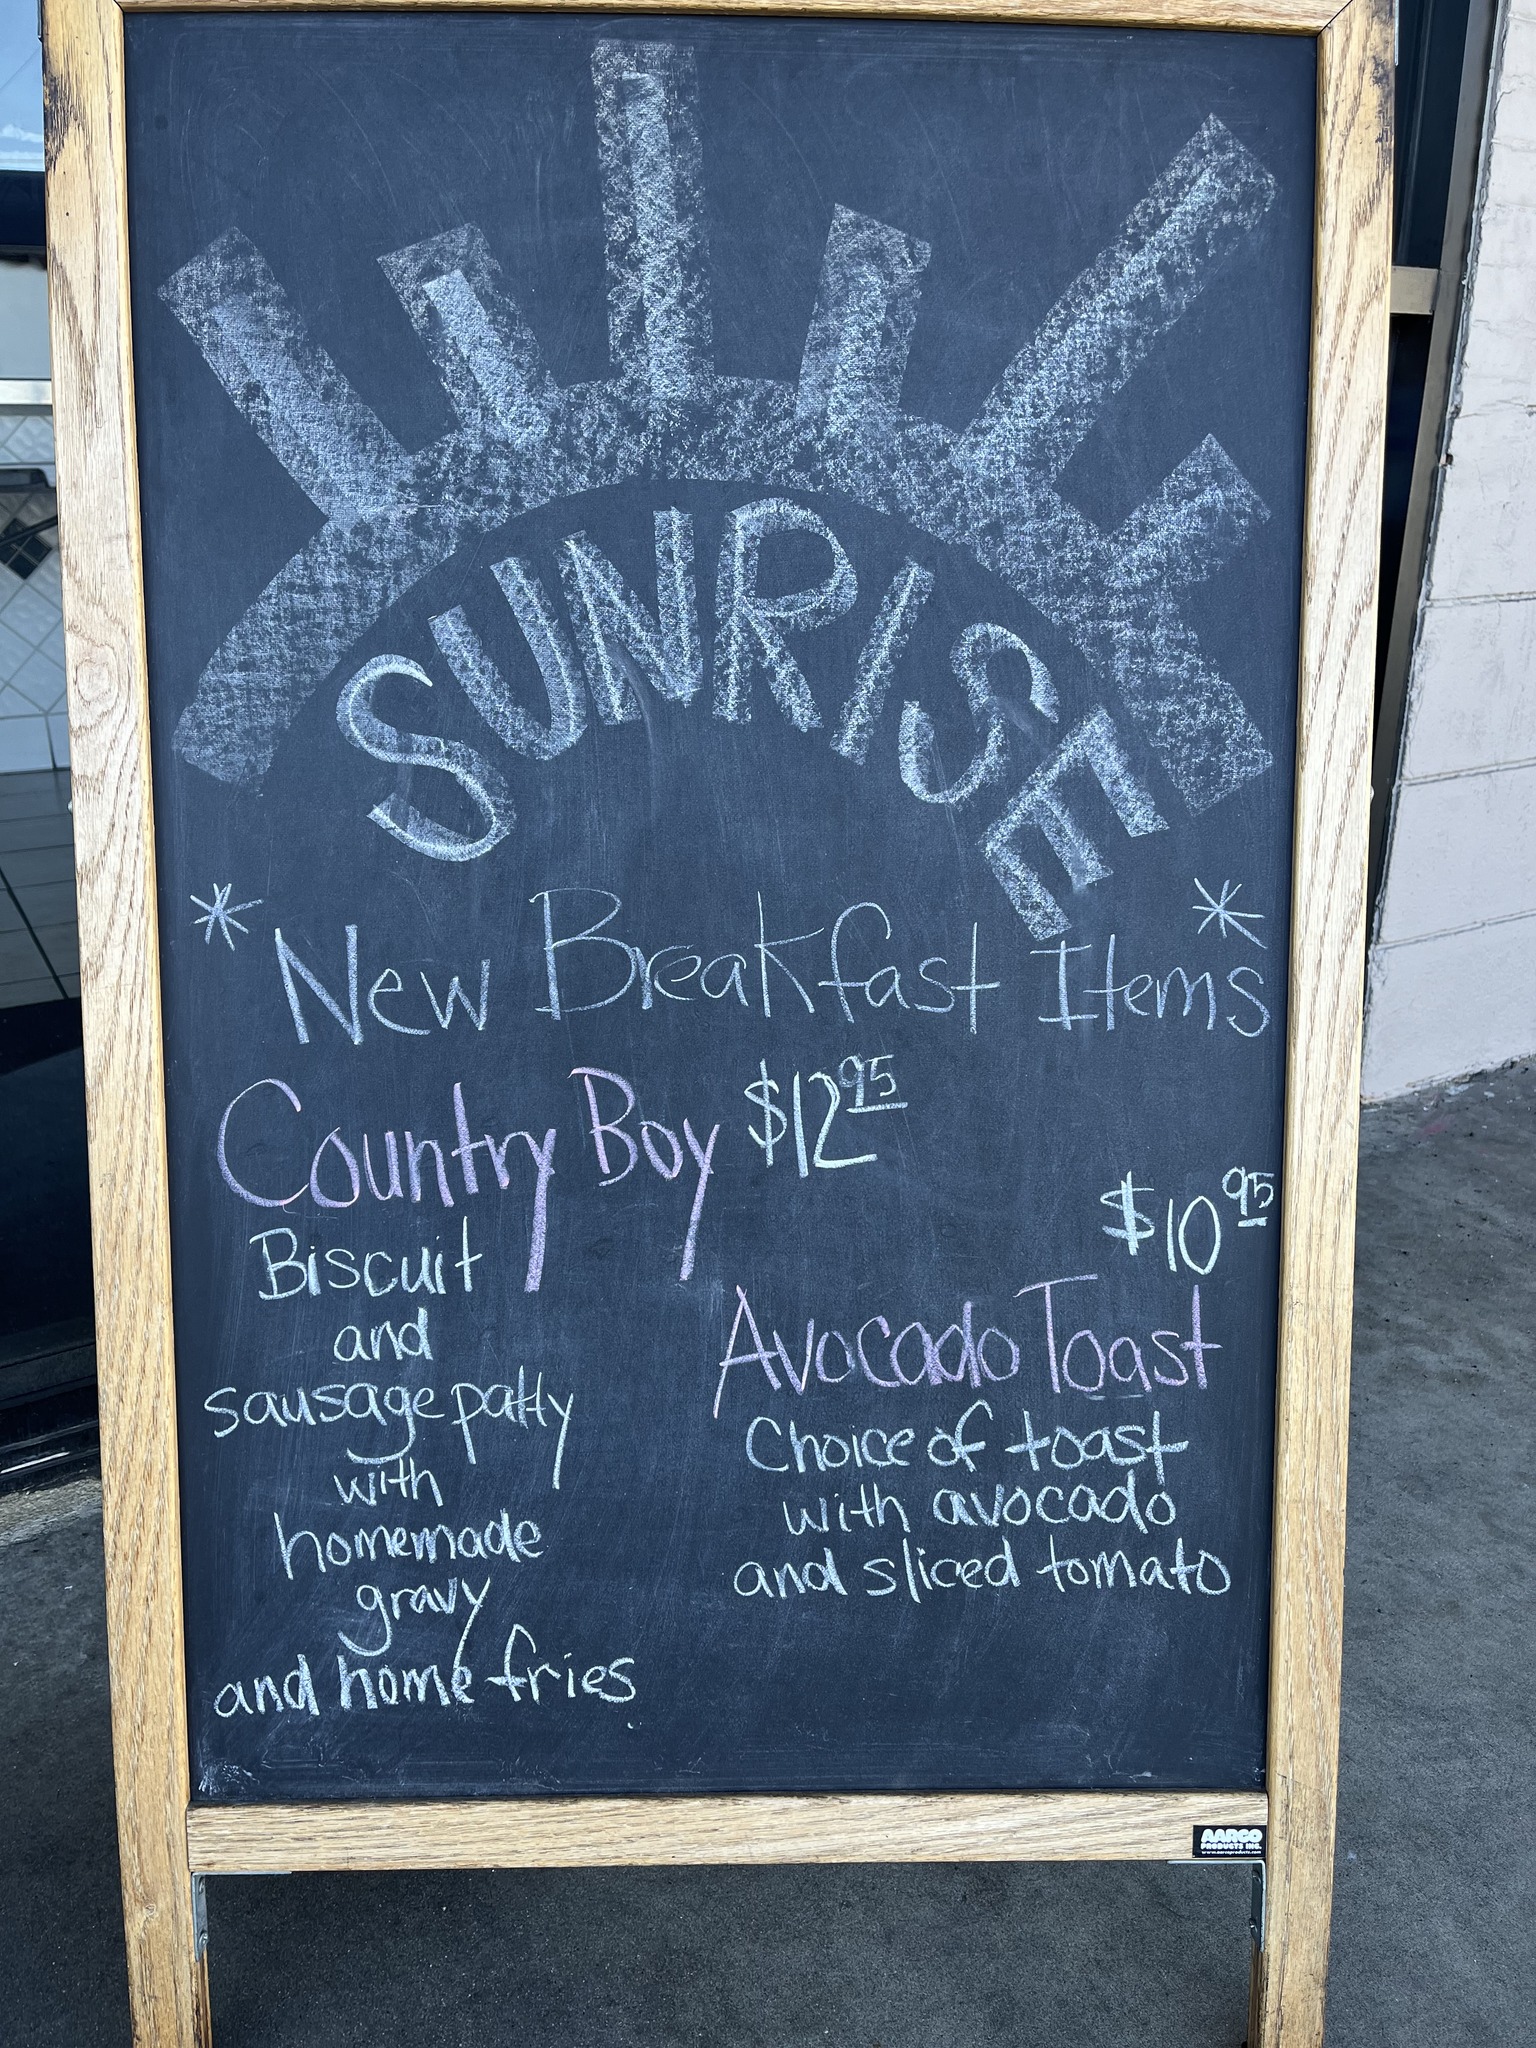 SUNRISE
* New Breakfast Items *
Country Boy $12.95
Biscuit
and
sausage patty
with
homemade
gravy
and home fries
$10.95
Avocado Toast
Choice of toast
with avocado
and sliced tomato
AARCO
PRODUCTS INC.
www.aarcoproducts.com